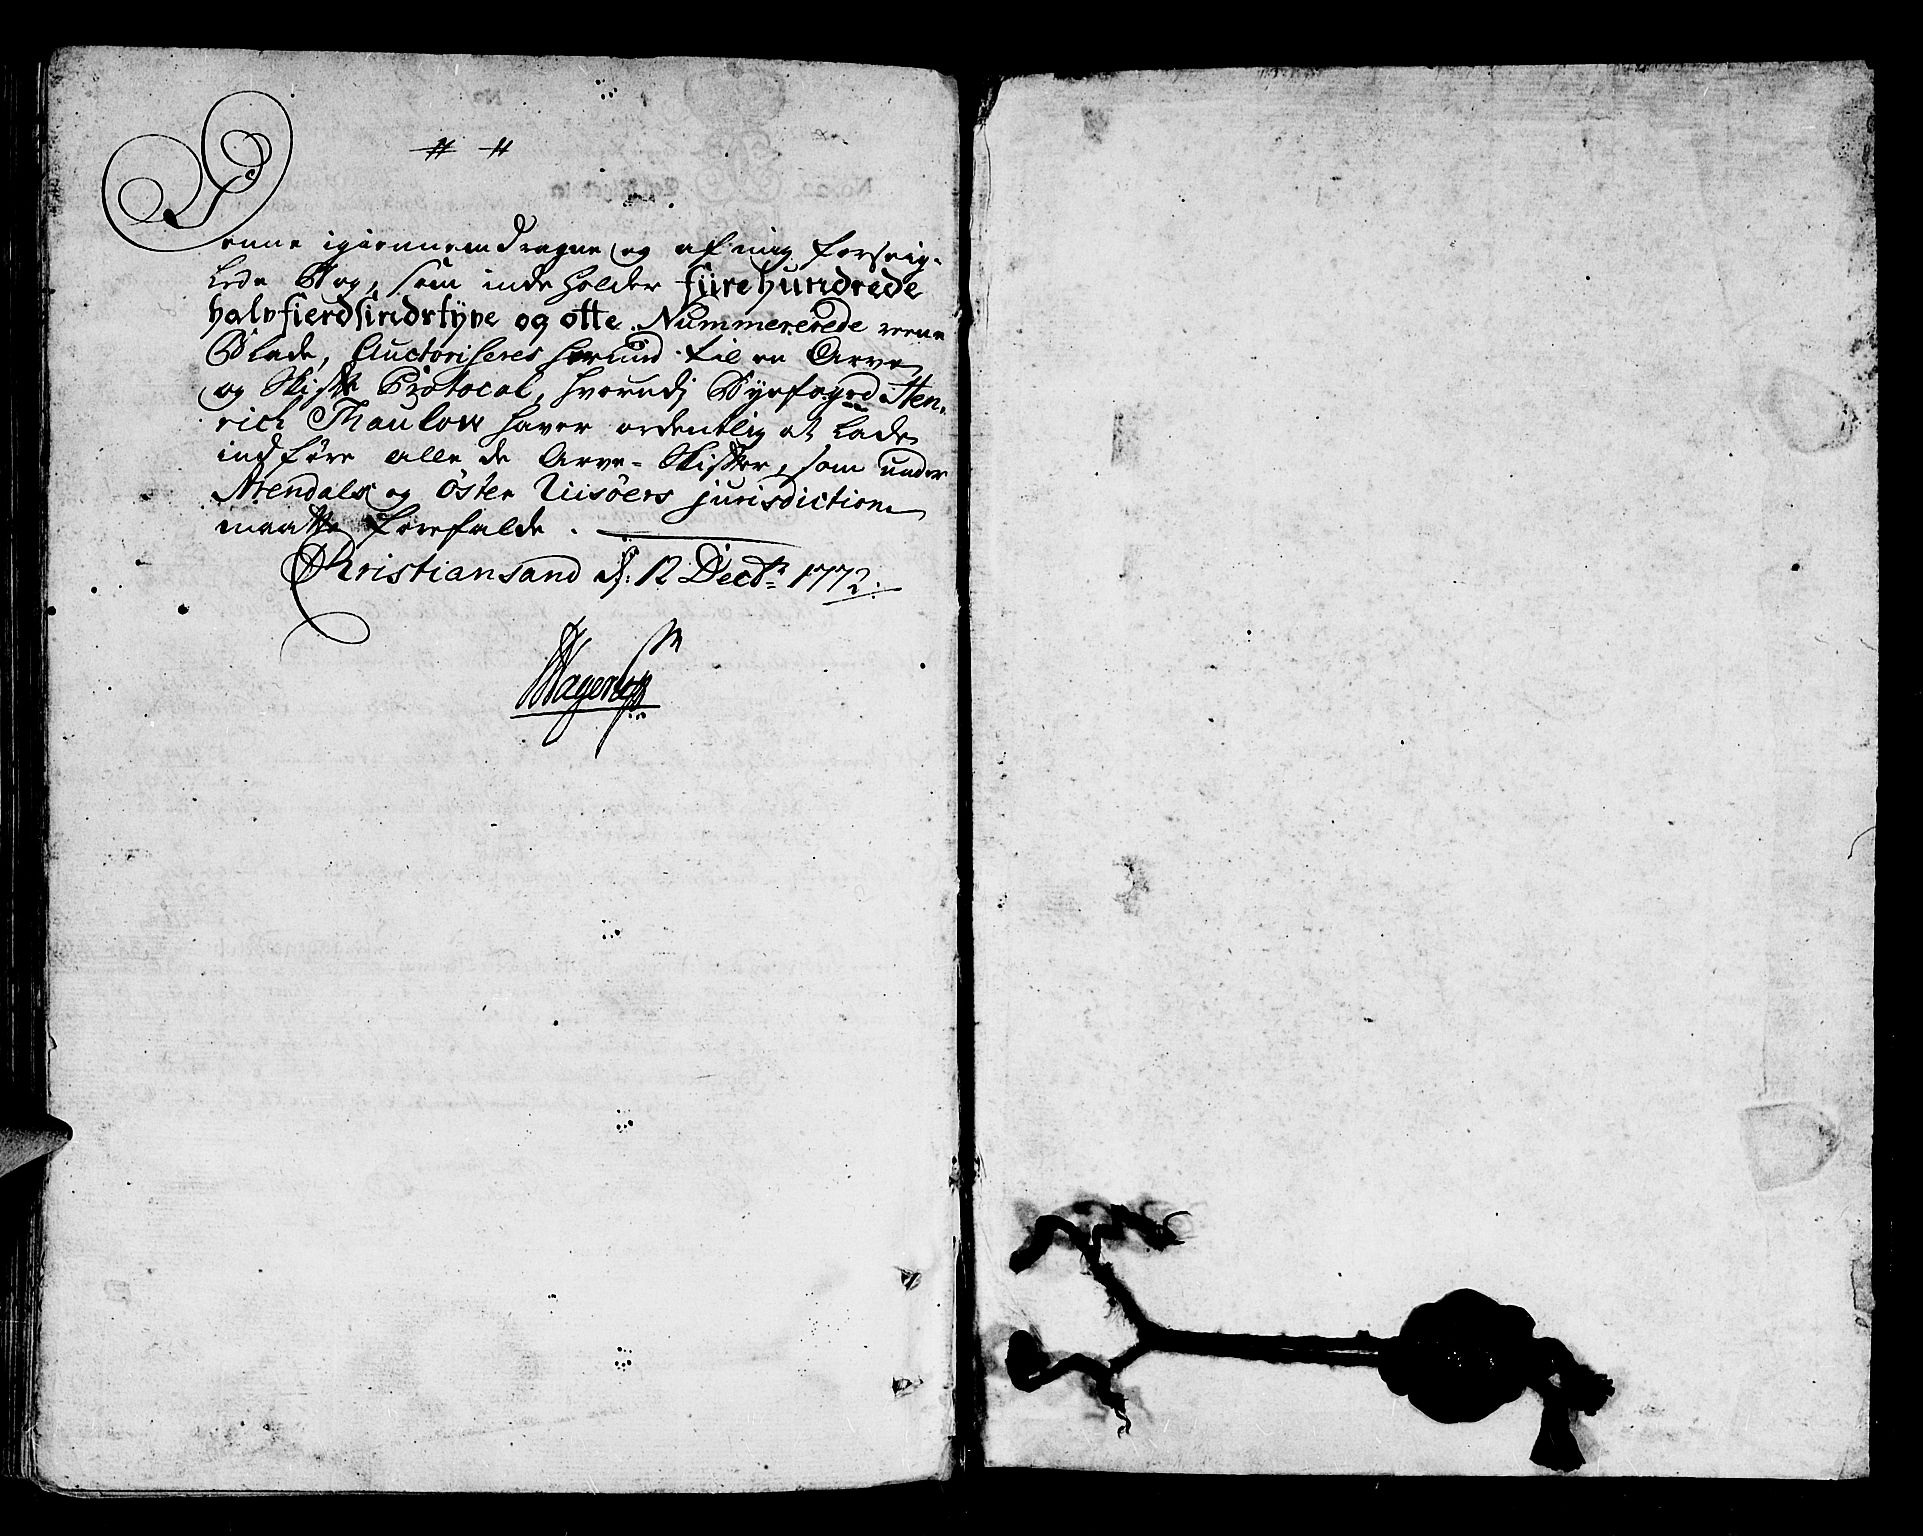 Denne igiennemdragne og af mig forseig-
lede Bog, som indeholder fiirehundrede
halvfierdsindstyve og otte Nummererede reene
Blade, Auctoriseres herved til en Arve
og Skifte Protocol, hvorudj Byefoged Hen-
rich Thaulow haver ordentlig at lade
indføre alle de Arve-Skifter, som under
Arendals og Öster Riisöers jurisdiction
maatte forefalde.
Christiansand d: 12 Decbr 1772.
Hagerup